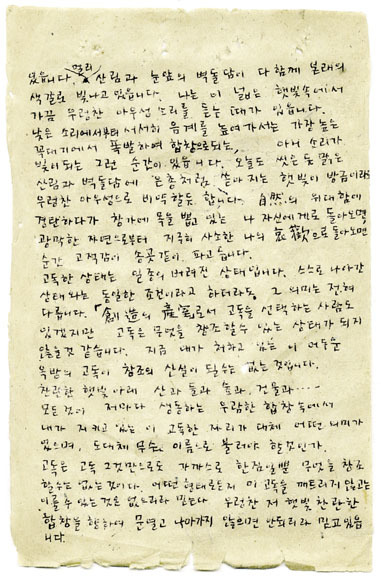 멀리
있습니다. 산림과 눈앞의 벽돌담이 다 함께 본래의
색갈로 빛나고 있읍니다. 나는 이 넓은 햇빛속에서
가끔 우렁찬 아우성 소리를 듣는 때가 있읍니다.
낮은 소리에서부터 서서히 음계를 높여가서는 가장 높은
꼭대기에서 폭발하여 합창으로 되는, 아니 소리가
빛이 되는 그런 순간이 있읍니다. 오늘도 씻은 듯 맑은
산림과 벽돌담에 은총처럼 쏟아지는 햇빛이 방금이라도
우렁찬 아우성으로 비약할듯 합니다. 自然의 위대함에
경탄하다가 창가에 목을 뽑고 있는 나 자신에게로 돌아오면
광막한 자연으로부터 지극히 사소한 나의 으로 돌아오면
순간 고적감이 송곳같이 파고 듭니다.
고독한 상태는 일종의 버려진 상태입니다. 스스로 나아간
상태와는 동일한 조건이라고 하더라도 그 의미는 전혀
다릅니다. 「創造의 産室로서 고독을 선택하는 사람도
있겠지만 고독은 무엇을 창조할수 있는 상태가 되지
않을것 같습니다. 지금 내가 처하고 있는 이 어두운
옥방의 고독이 창조의 산실이 될수는 없는 것입니다.
찬란한 햇빛 아래 산과 들과 돌과, 건물과……
모든 것이 저마다 생동하는 우람한 합창속에서
내가 지키고 있는 이 고독한 자리가 대체 어떤 의미가
있으며, 도대체 무슨 이름으로 불러야 할것인가.
고독은 고독 그것만으로도 가까스로 한짐일뿐 무엇을 창조
할수는 없는 것이다. 어떤 형태로든지 이 고독을 깨트리지 않고는
이룰수 있는 것은 없으리라 믿는다 우렁찬 저 햇빛 찬란한
합창을 향하여 문열고 나아가지 않으면 안되리라 믿고 있읍
니다.